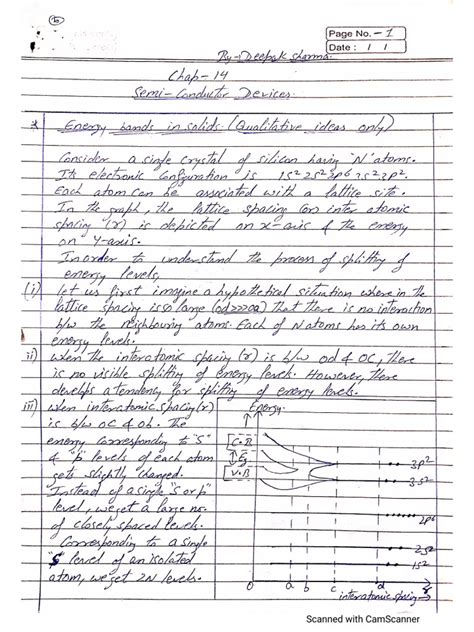 6
Page No. - 1
Date : / /
By:- Deepak Sharma.
Chap - 14
Semi-Conductor Devices.
* Energy bands in solids. (Qualitative ideas only)
Consider a single crystal of silicon having 'N' atoms.
Its electronic configuration is 1s² 2s² 2p⁶ 3s² 3p².
Each atom can be associated with a lattice site.
In the graph, the lattice spacing (or) inter atomic
spacing (r) is depicted on x-axis & the energy
on Y-axis.
In order to understand the process of splitting of
energy levels,
(i) let us first imagine a hypothetical situation where in the
lattice spacing is so large that there is no interaction
b/w the neighbouring atoms. Each of N atoms has its own
energy levels.
ii) when the interatomic spacing (r) is b/w od & OC, there
is no visible splitting of energy levels. However, there
develops a tendency for splitting of energy levels.
iii) when interatomic spacing (r)
is b/w oc & ob. The
energy corresponding to "S"
& "p" levels of each atom
gets slightly changed.
Instead of a single "s or p"
level, we get a large no.
of closely spaced levels.
Corresponding to a single
"S" level of an isolated
atom, we get 2N levels.
Energy
C.B
Eg
V.B
3p²
3s²
2p⁶
2s²
1s²
0 a b c d r
interatomic spacing →
Scanned with CamScanner